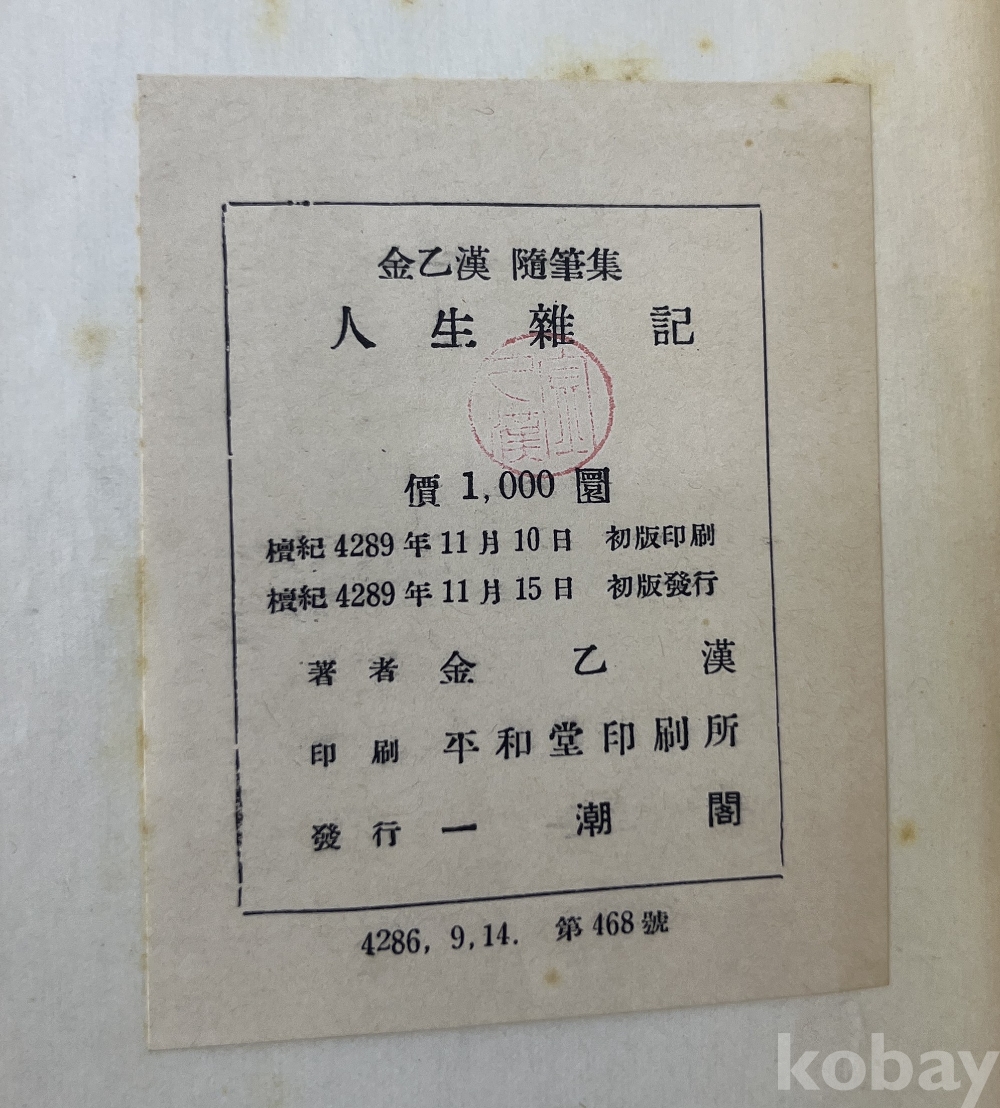 金乙漢 隨筆集
人生雜記
價 1,000 圜
檀紀 4289 年 11 月 10 日 初版印刷
檀紀 4289 年 11 月 15 日 初版發行
著者 金乙漢
印刷 平和堂印刷所
發行 一潮閣
4286, 9, 14. 第 468 號
kobay